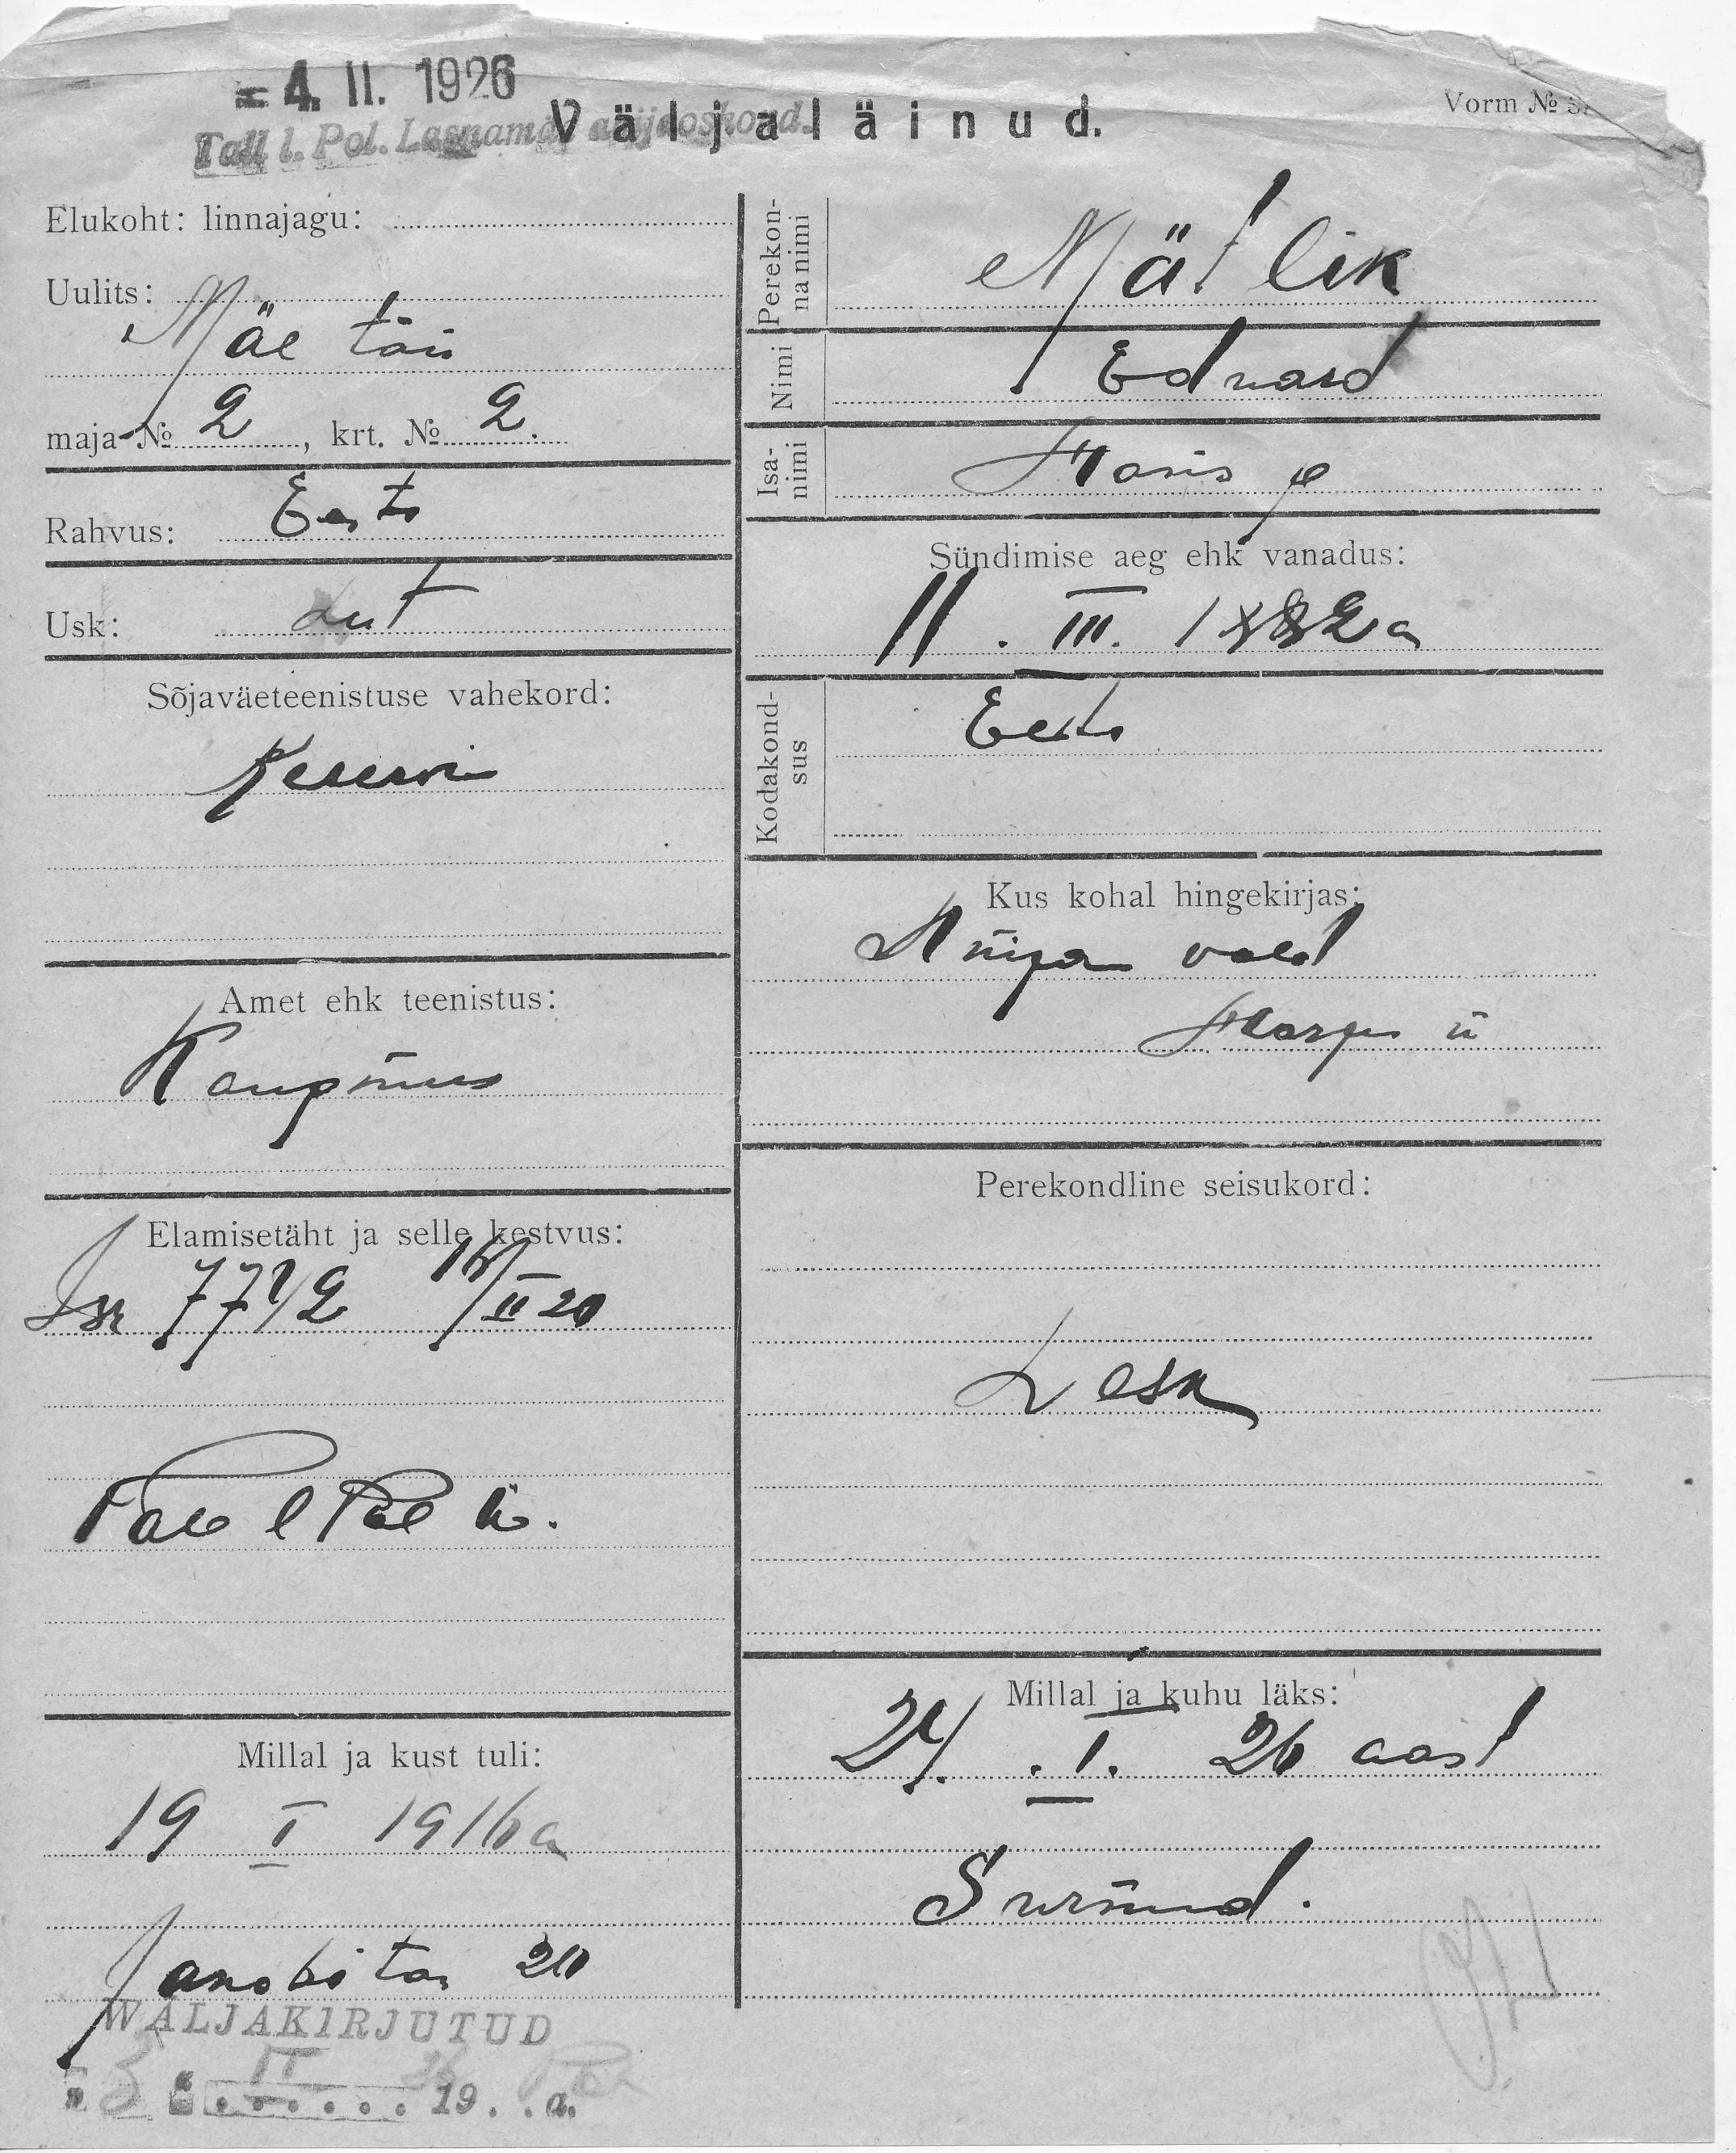 - 4. II. 1926
Väljaläinud.
Vorm №
Tall. l. Pol. Lasnamäe jaoskond.
Elukoht: linnajagu:
Uulits:
Mäe tän
maja № 2, krt. № 2.
Rahvus: Eesti
Usk: Lut
Sõjaväeteenistuse vahekord:
Reservi
Amet ehk teenistus:
Kaupmees
Elamisetäht ja selle kestvus:
Isk 77 /2 16/II 20
Tall l Pol
Millal ja kust tuli:
19 I 1916 a
Jakobi tän 20
WÄLJAKIRJUTUD
5 II 26 19. . a.
Perekonnanimi
Mätlik
Nimi
Eduard
Isanimi
Hans p
Sündimise aeg ehk vanadus:
11. III. 1882 a
Kodakondsus
Eesti
Kus kohal hingekirjas:
Anija vald
Harju
Perekondline seisukord:
Lesk
Millal ja kuhu läks:
24. I. 26 aast
Surnud.